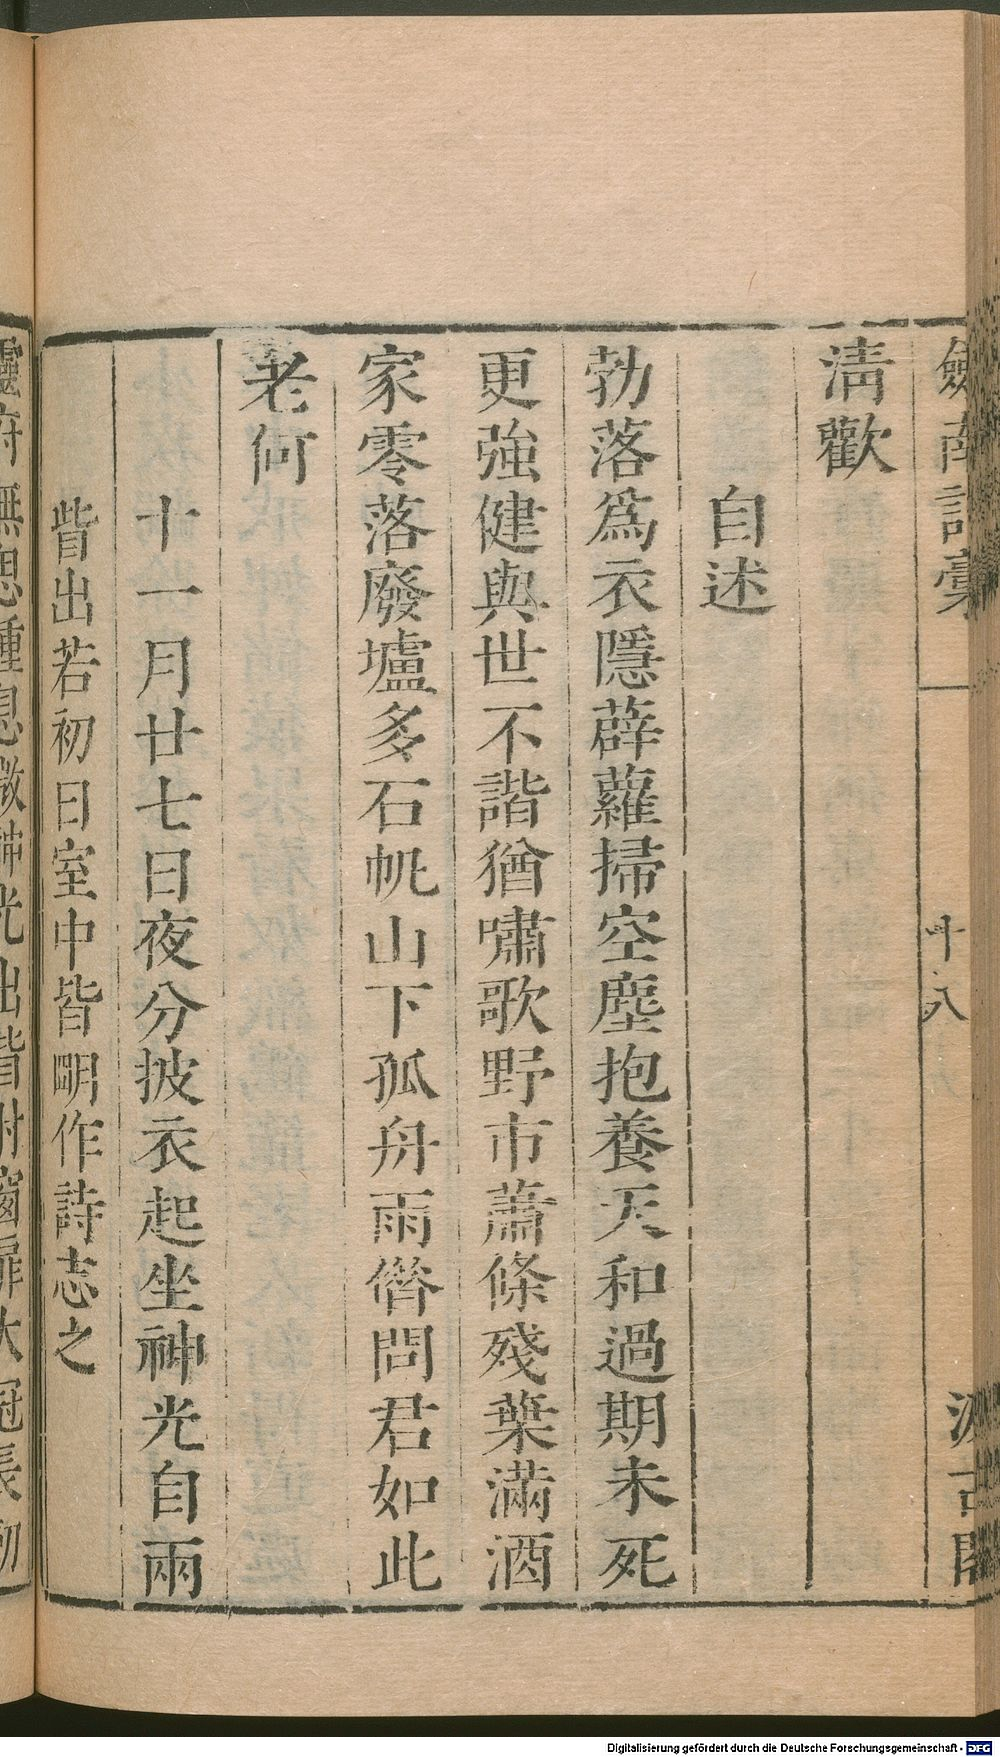 劒南詩稾
十八
汲古閣
清歡
自述
勃落爲衣隱薜蘿掃空塵抱養天和過期未死
更強健與世不諧猶嘯歌野市蕭條殘葉滿酒
家零落廢壚多石帆山下孤舟雨借問君如此
老何
十一月廿七日夜分披衣起坐神光自兩
眥出若初日室中皆朙作詩志之
靈府無思踵息微神光出眥射窗扉大冠長
Digitalisierung gefördert durch die Deutsche Forschungsgemeinschaft - DFG